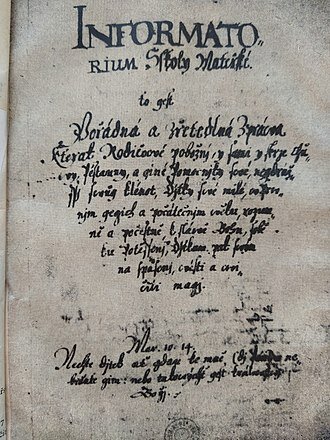 INFORMATO-
RIUM Školy Mateřské.
to gest
Pořádná a zřetedlná Zpráwa
kterak Rodičowé pobožnj, y samj y skrze Chů-
wy, Pěstauny, a giné Pomocnjky swé, neydraž-
ssj swůg klénot, Djtky své milé,
gegich a počátečným cwiku rozum-
ně a počestně k sláwě Božj, sobě
ku Potěssenj, Djtkám pak svým
na Spasenj, wésti a cwi-
čiti magj.
Mar. 10. 14.
Nechte djtek ať gdau ke mně, a ne-
braňte gim: nebo takowých gest králowstwj
Božj.